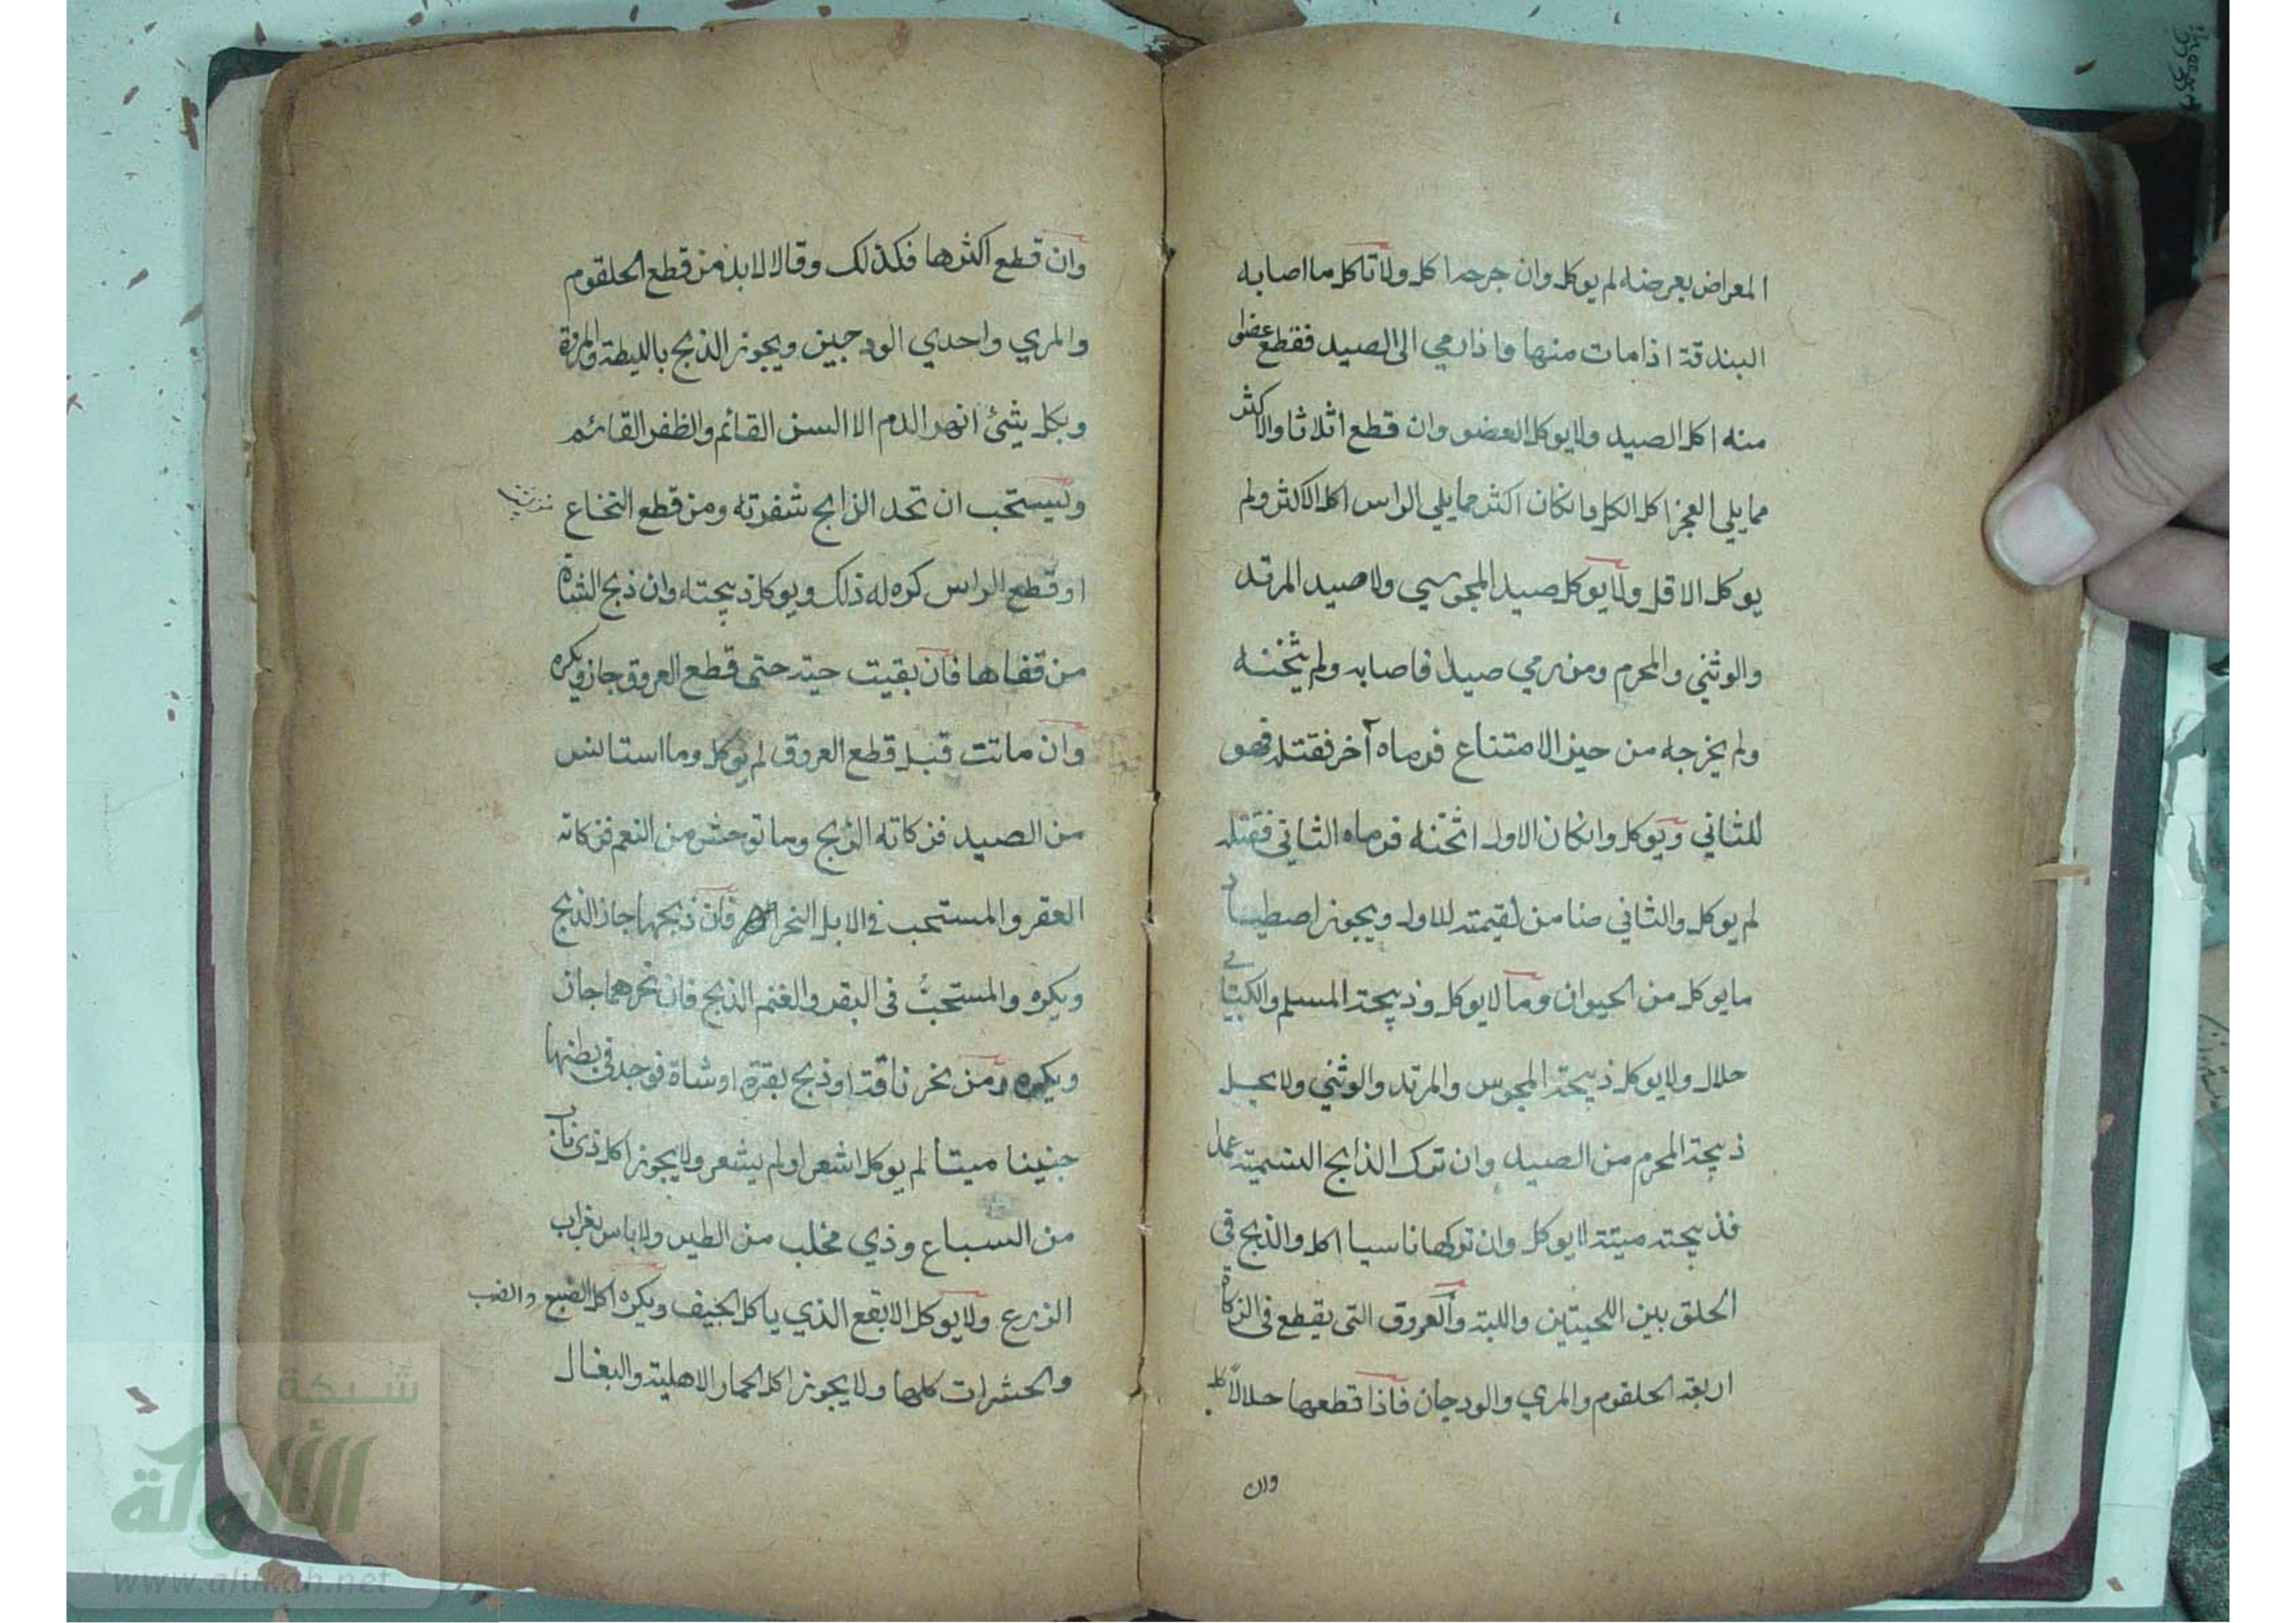 المعراض بعرضه لم يوكل وان جرحه اكل ولا تاكل ما اصابه
البندقة اذا مات منها واذا رمي الى الصيد فقطع عضوا
منه اكل الصيد ولا يوكل العضو وان قطع اثلاثا والاكثر
مما يلي العجز اكل الكل وانكان اكثر مما يلي الراس اكل الاكثر ولم
يوكل الاقل ولا يوكل صيد المجوسي ولا صيد المرتد
والوثني والمحرم ومن رمي صيدا فاصابه ولم يثخنه
ولم يخرجه من حيز الامتناع فرماه آخر فقتله فهو
للثاني ويوكل وانكان الاول اثخنه فرماه الثاني فقتله
لم يوكل والثاني ضامن لقيمته للاول ويجوز اصطياد
ما يوكل من الحيوان وما لا يوكل وذبيحة المسلم والكتابي
حلال ولا يوكل ذبيحة المجوس والمرتد والوثني ولا يحل
ذبيحة المحرم من الصيد وان ترك الذابح التسمية عمدا
فذبيحته ميتة لا يوكل وان تركها ناسيا اكل والذبح في
الحلق بين اللحيتين واللبة والعروق التي يقطع في الزكاة
اربعة الحلقوم والمري والودجان فاذا قطعها حلالا كل
وان
وان قطع اكثرها فكذلك وقالا لابد من قطع الحلقوم
والمري واحدي الودجين ويجوز الذبح بالليطة والمروة
وبكل شئ انهر الدم الا السن القائم والظفر القائم
ويستحب ان تحد الذابح شفرته ومن قطع النخاع
او قطع الراس كره له ذلك ويوكل ذبيحته وان ذبح الشاة
من قفاها فان بقيت حية حتى قطع العروق جاز ويكره
وان ماتت قبل قطع العروق لم يوكل وما استانس
من الصيد فزكاته الذبح وما توحش من النعم فزكاته
العقر والمستحب في الابل النحر فان ذبحها جاز الذبح
ويكره والمستحبُّ في البقر والغنم الذبح فان نحرهما جاز
ويكره ومن نحر ناقة او ذبح بقرة او شاة فوجد في بطنها
جنينا ميتا لم يوكل اشعر او لم يشعر ولا يجوز اكل ذي ناب
من السباع وذي مخلب من الطير ولا باس بغراب
الزرع ولا يوكل الابقع الذي ياكل الجيف ويكره اكل الضبع والضب
والحشرات كلها ولا يجوز اكل الحمار الاهلية والبغال
شبكة
الألوكة
www.alukah.net